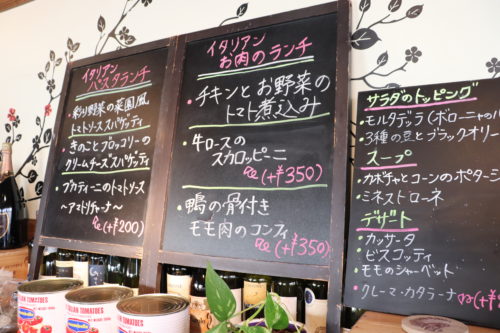 イタリアン
パスタランチ
・彩り野菜の菜園風
トマトソーススパゲッティ
・きのことブロッコリーの
クリームチーズスパゲッティ
・ブカティーニのトマトソース
～アマトリチャーナ～
(+¥200)
イタリアン
お肉のランチ
・チキンとお野菜の
トマト煮込み
・牛ロースの
スカロッピーニ
(+¥350)
・鴨の骨付き
モモ肉のコンフィ
(+¥350)
サラダのトッピング
・モルタデッラ(ボローニャのハ
・3種の豆とブラックオリー
スープ
・カボチャとコーンのポタージ
・ミネストローネ
デザート
・カッサータ
・ビスコッティ
・モモのシャーベット
・クレーマ・カタラーナ
TOMATOES